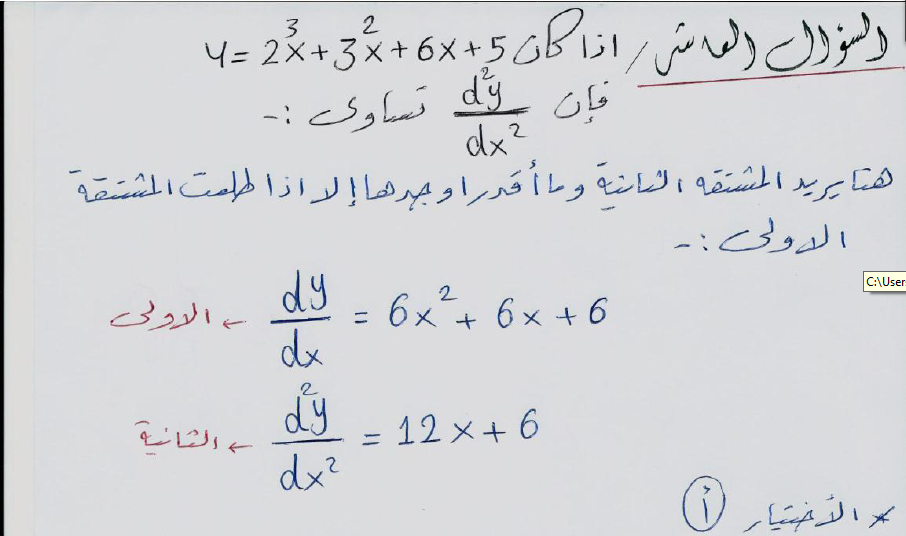 السؤال العاشر / اذا كان y = 2x³ + 3x² + 6x + 5
فإن d²y/dx² تساوى :-
هنا يريد المشتقه الثانية وما أقدر اوجدها إلا اذا طلعت المشتقة
الاولى :-
dy/dx = 6x² + 6x + 6 ← الاولى
d²y/dx² = 12x + 6 ← الثانية
* الأختيار أ
C:\User